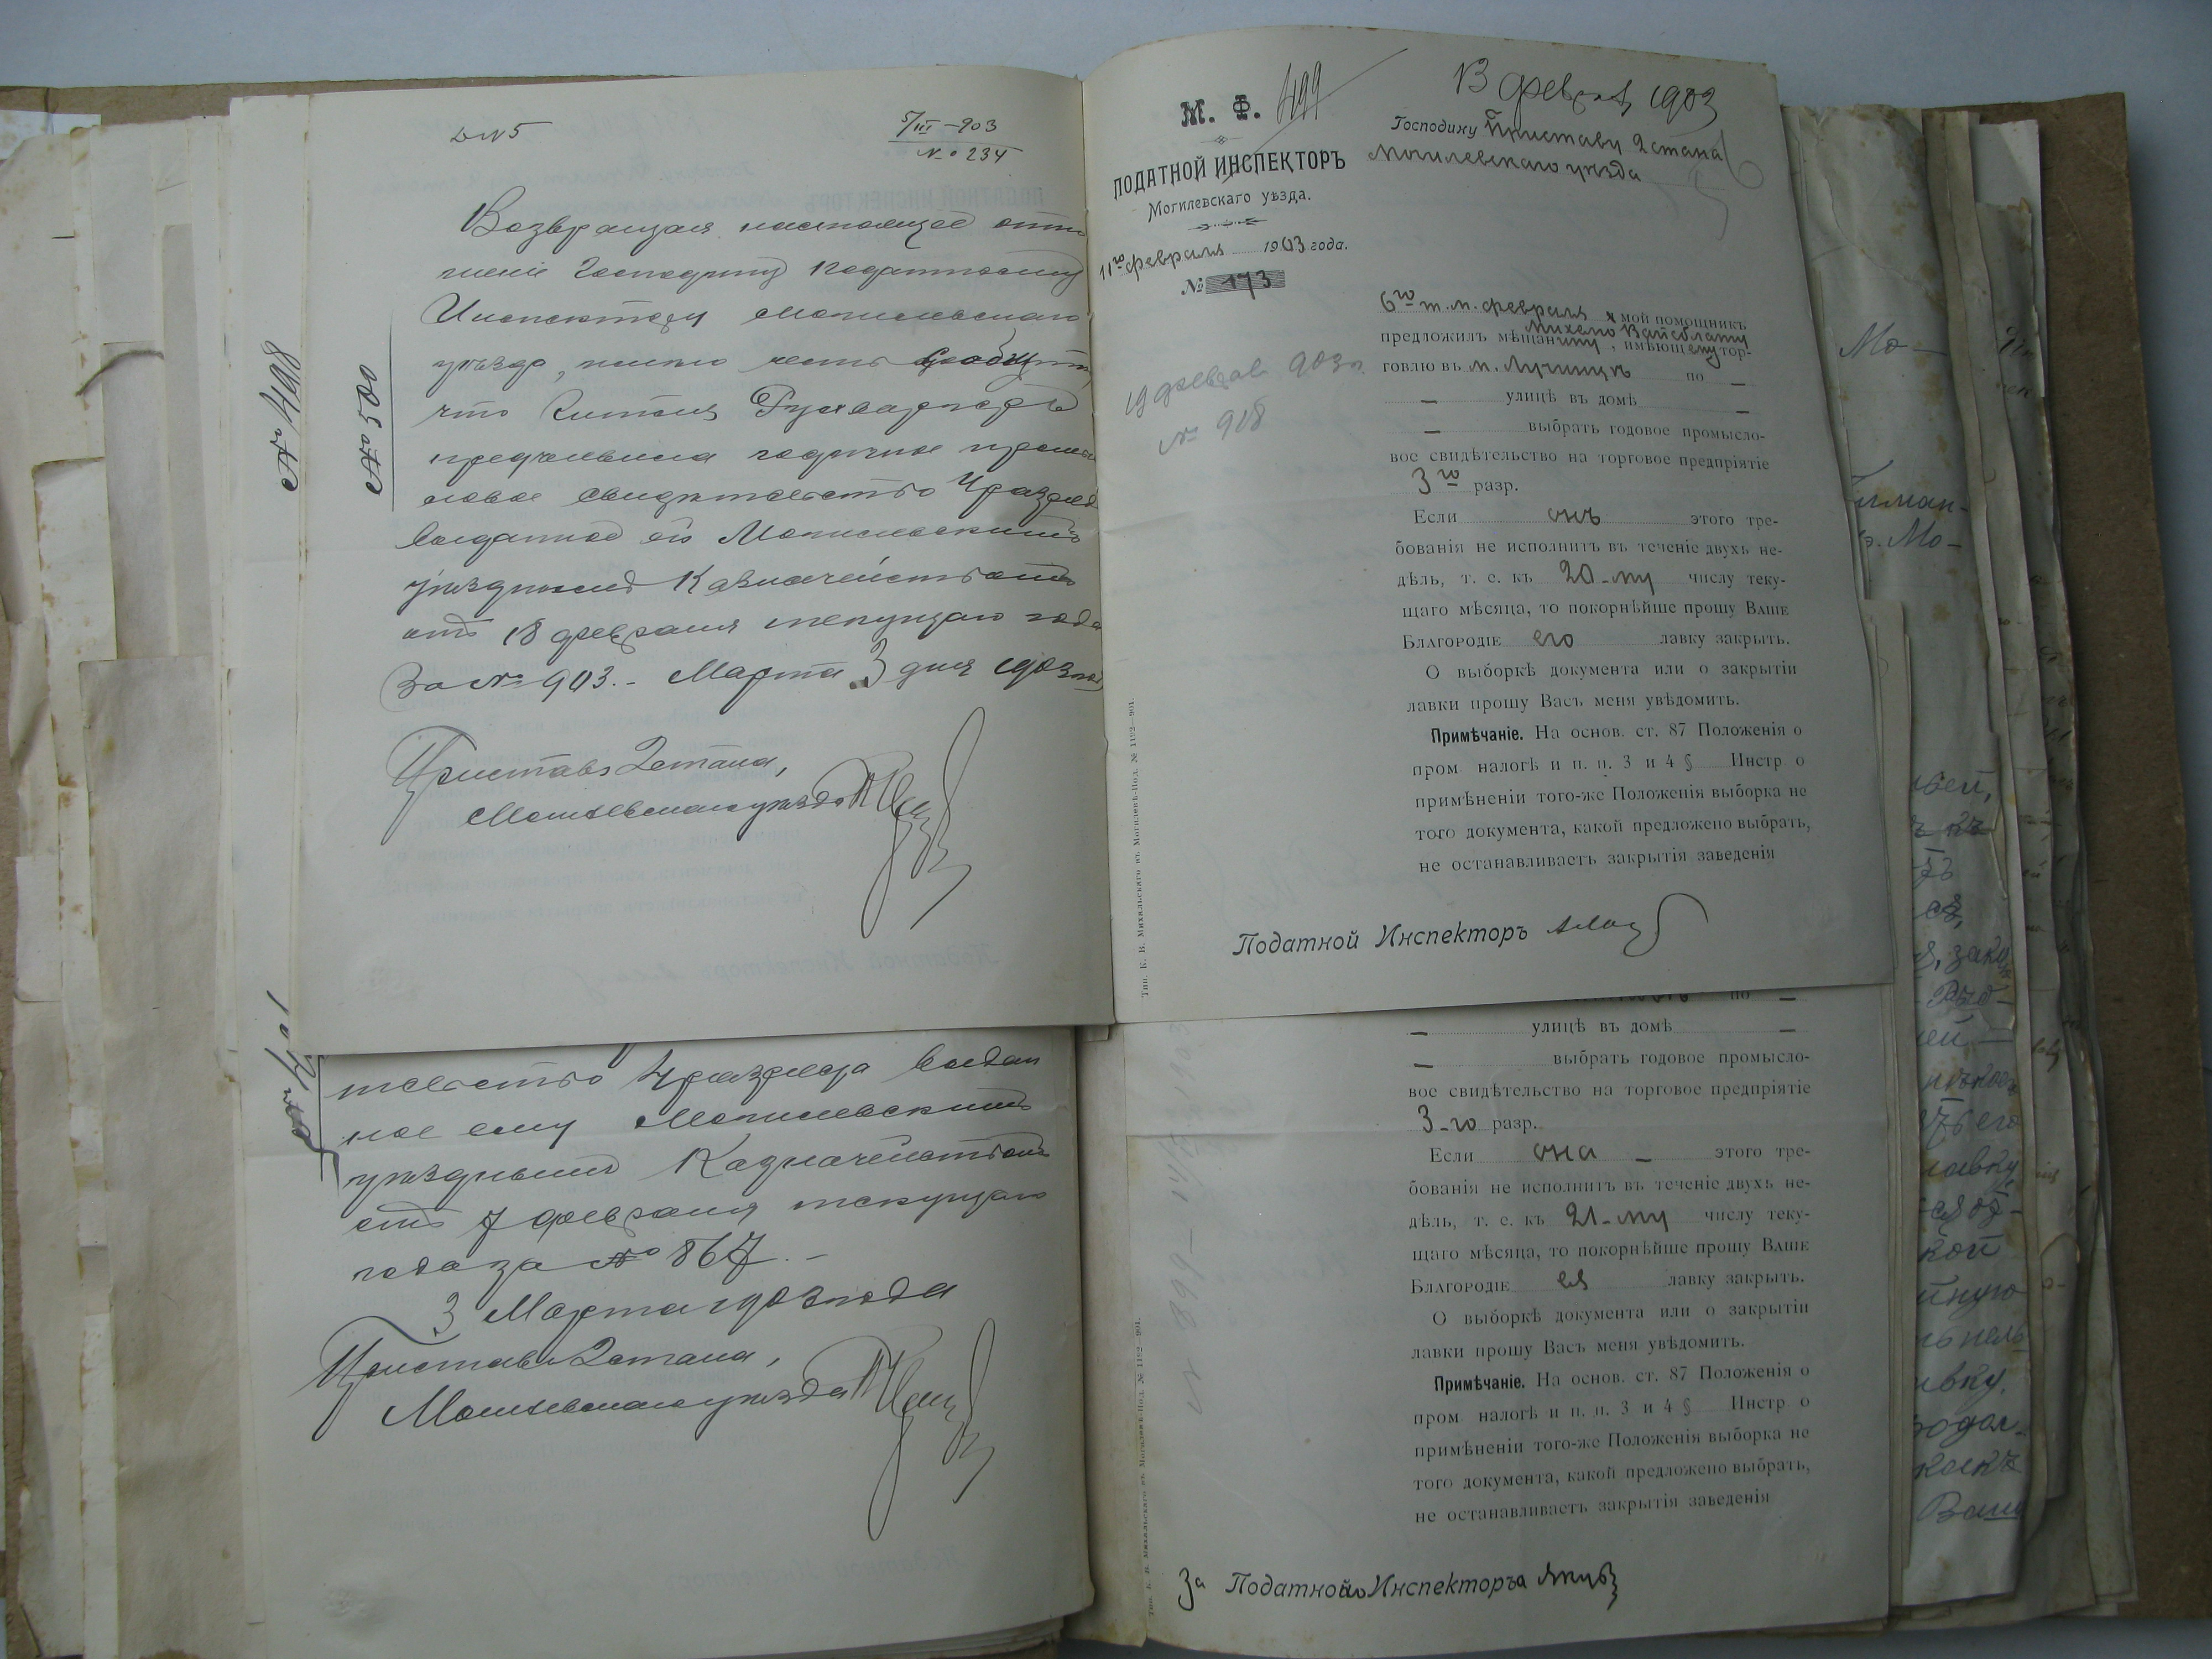 5/III – 903
№ 234
№ 498
№ 500
Возвращая настоящее отно
шеніе Господину Податному
Инспектору Могилевскаго
уѣзда, имею честь сообщить,
что Гитля
предъявила годичное промы
словое свидѣтельство 4 разряда
выданное ей Могилевскимъ
уѣзднымъ Казначействомъ
отъ 18 февраля текущаго года
За № 903. - Марта 3 дня 1903 года
Приставъ 2 стана,
Могилевскаго уѣзда
М. Ф. 499
ПОДАТНОЙ ИНСПЕКТОРЪ
Могилевскаго уѣзда.
11го февраля 1903 года.
№ 173
19 февраля 903 г.
№ 918
13 февраля 1903
Господину Приставу 2 стана
Могилевскаго уѣзда
6го т. м. февраля мой помощникъ
предложилъ мѣщанину Михелю Вайсблату, имѣющему тор-
говлю въ м. Лучинцѣ по —
— улицѣ въ домѣ —
— выбрать годовое промысло-
вое свидѣтельство на торговое предпріятіе
3го разр.
Если онъ этого тре-
бованія не исполнитъ въ теченіе двухъ не-
дѣль, т. е. къ 20-му числу теку-
щаго мѣсяца, то покорнѣйше прошу Ваше
Благородіе его лавку закрыть.
О выборкѣ документа или о закрытіи
лавки прошу Васъ меня увѣдомить.
Примѣчаніе. На основ. ст. 87 Положенія о
пром налогѣ и п. п. 3 и 4 § Инстр о
примѣненіи того-же Положенія выборка не
того документа, какой предложено выбрать,
не останавливаетъ закрытія заведенія
Податной Инспекторъ
Тип. К. В. Михальскаго въ Могилевѣ-Под. № 1192—901.
тельство 4 разряда выдан
ное ему Могилевскимъ
уѣзднымъ Казначействомъ
отъ 7 февраля текущаго
года за № 867. –
3 Марта 1903 года
Приставъ 2 стана,
Могилевскаго уѣзда
по —
— улицѣ въ домѣ —
— выбрать годовое промысло-
вое свидѣтельство на торговое предпріятіе
3-го разр.
Если она — этого тре-
бованія не исполнитъ въ теченіе двухъ не-
дѣль, т. е. къ 21-му числу теку-
щаго мѣсяца, то покорнѣйше прошу Ваше
Благородіе ея лавку закрыть.
О выборкѣ документа или о закрытіи
лавки прошу Васъ меня увѣдомить.
Примѣчаніе. На основ. ст. 87 Положенія о
пром налогѣ и п. п. 3 и 4 § Инстр о
примѣненіи того-же Положенія выборка не
того документа, какой предложено выбрать,
не останавливаетъ закрытія заведенія
За Податного Инспектора
Тип. К. В. Михальскаго въ Могилевѣ-Под. № 1192—901.
Мо-